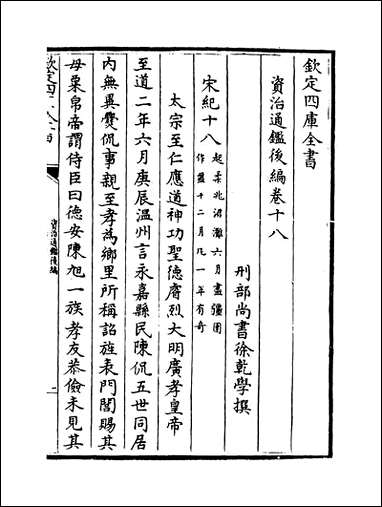 欽定四庫全書
資治通鑑後編卷十八
刑部尚書徐乾學撰
宋紀十八
起柔兆涒灘六月盡彊圉
作噩十二月凡一年有奇
太宗至仁應道神功聖德睿烈大明廣孝皇帝
至道二年六月庚辰溫州言永嘉縣民陳侃五世同居
内無異爨侃事親至孝為鄉里所稱詔旌表門閭賜其
母粟帛帝謂侍臣曰德安陳旭一族孝友恭儉未見其
資治通鑑後編